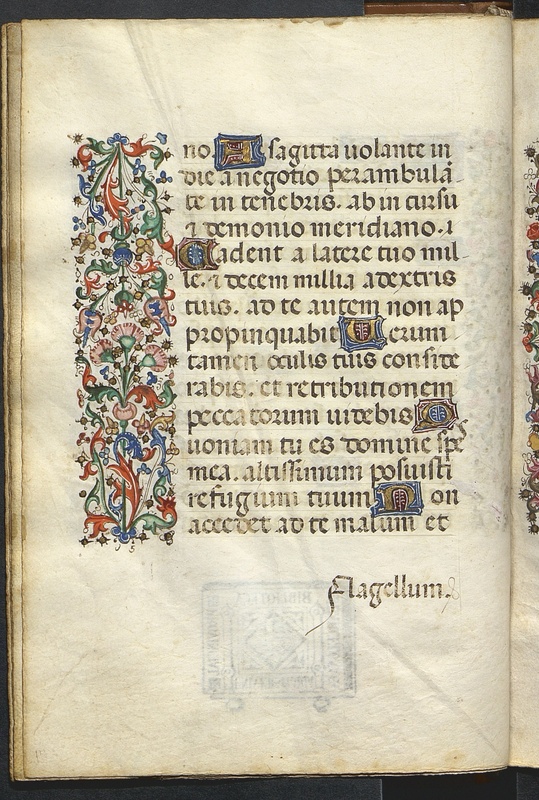 no. A sagitta uolante in
die a negotio perambulā
te in tenebris. ab in cursu
⁊ demonio meridiano. ⁊
Cadent a latere tuo mil
le. ⁊ decem millia adextris
tuis. ad te autem non ap
propinquabit Uerum
tamen oculis tuis conside
rabis. et retributionem
peccatorum uidebis Q
uoniam tu es domine spes
mea. altissimum posuisti
refugium tuum Non
accedet ad te malum et
Flagellum.